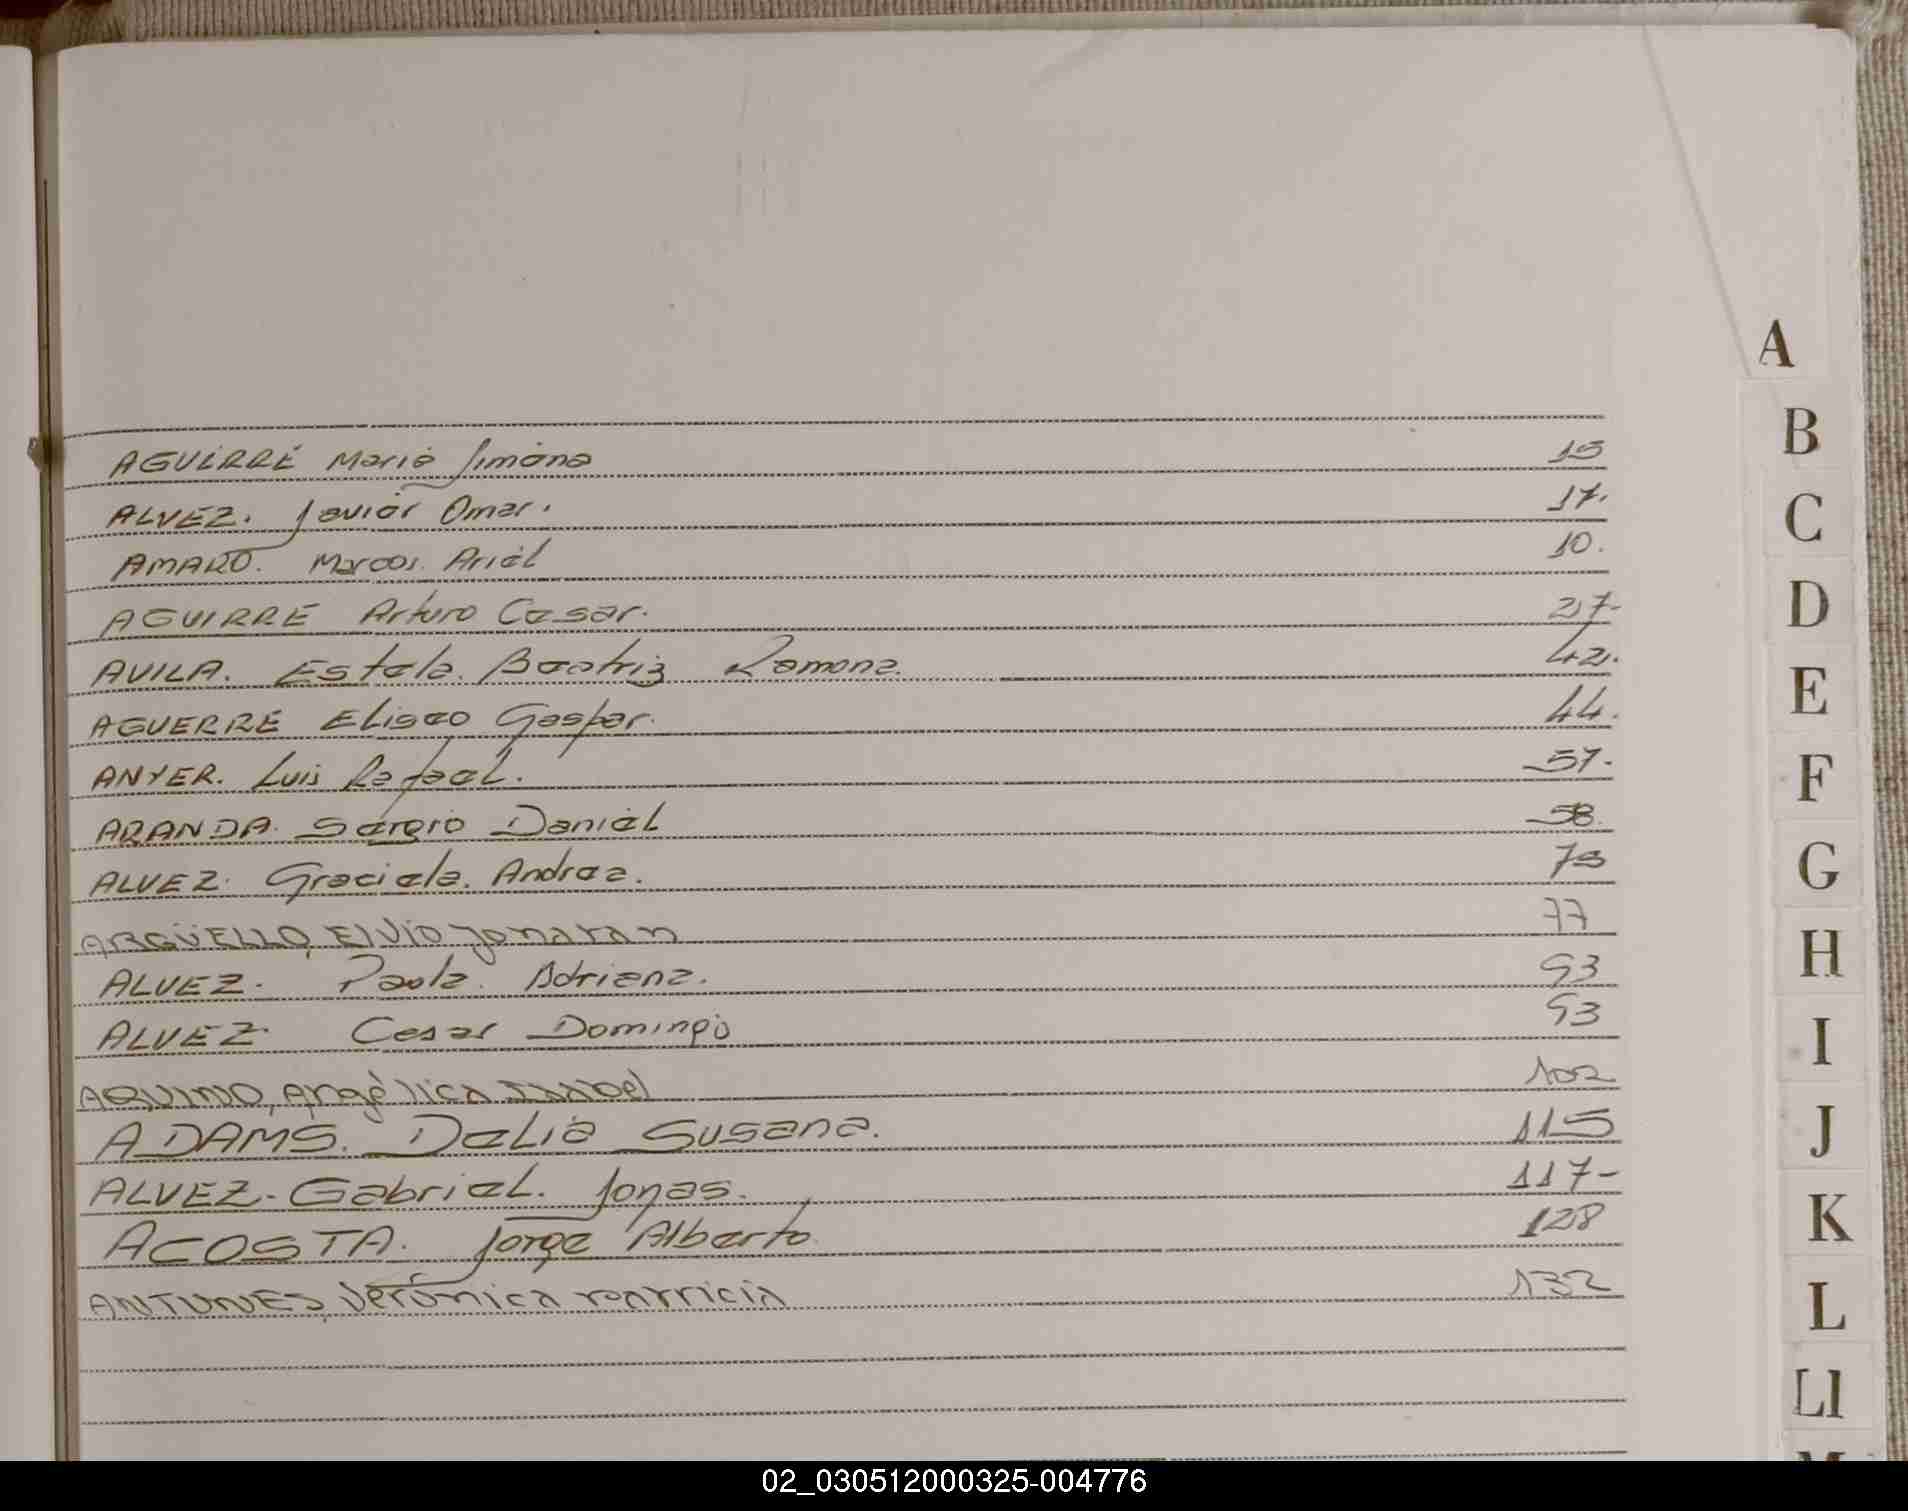 AGUIRRE Maria Jimena 15
ALVEZ. Javier Omar. 17.
AMARO. Marcos. Ariel 10.
AGUIRRE Arturo Cesar. 27-
AVILA. Estela. Beatriz Ramona. 42.
AGUERRE Eliseo Gaspar. 44.
ANYER. Luis Rafael. 57.
ARANDA. Sergio Daniel 58.
ALVEZ. Graciela. Andrea. 75
ARGÜELLO, Elvio Jonatan 77
ALVEZ. Paola. Adriana. 93
ALVEZ. Cesar Domingo 93
AQUINO, Angélica Isabel 102
ADAMS. Delia Susana. 115
ALVEZ-Gabriel. Jonas. 117-
ACOSTA. Jorge Alberto. 128
ANTUNES, Verónica Patricia 132
A
B
C
D
E
F
G
H
I
J
K
L
Ll
02_030512000325-004776